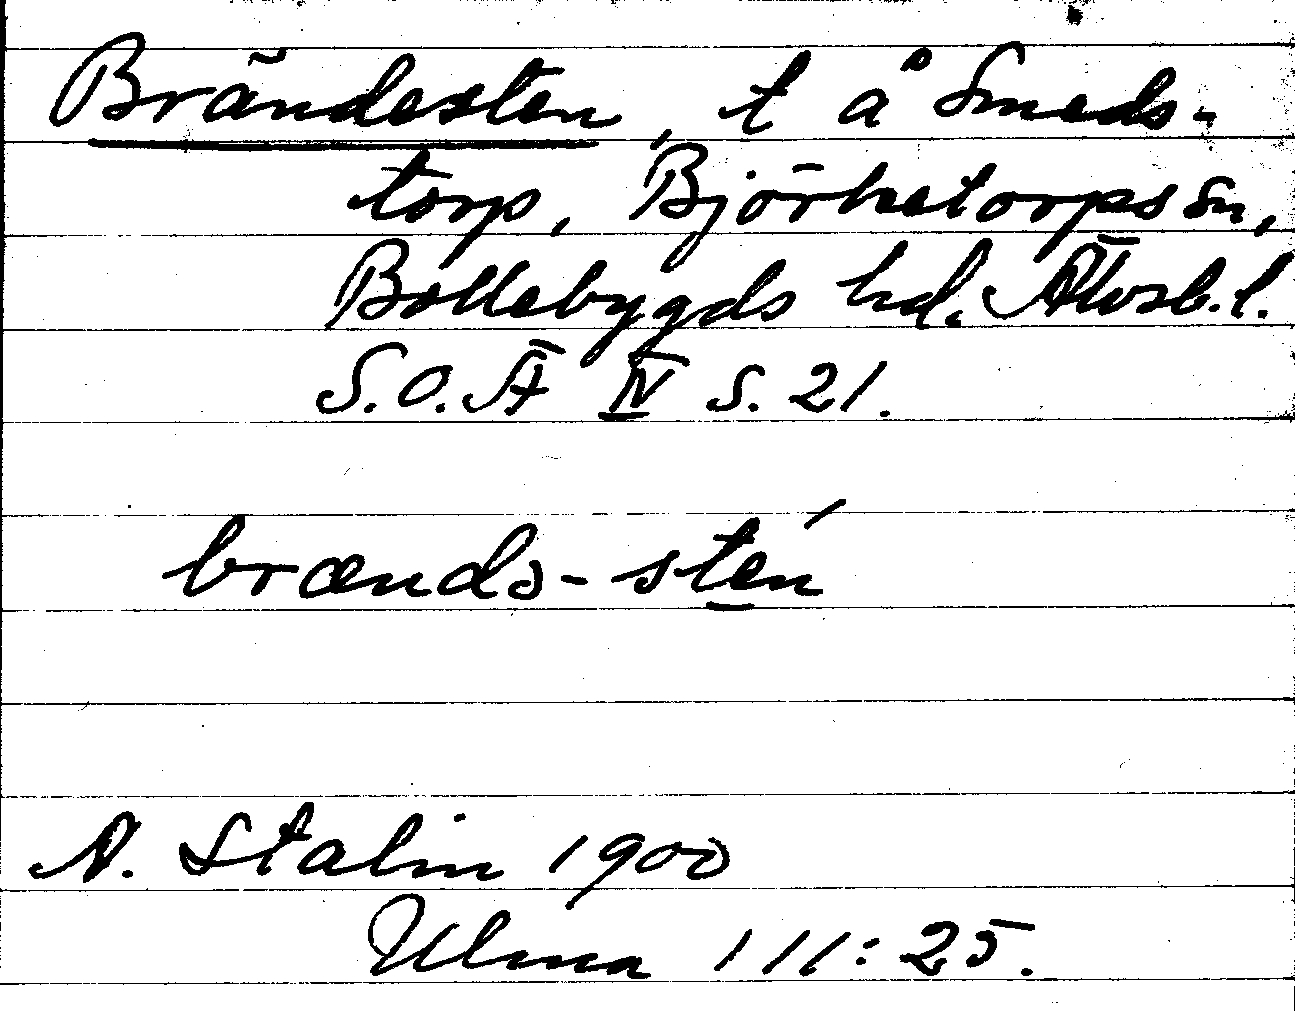 Brändesten, t å Smeds-
torp, Björketorps sn,
Bollebygds hd. Älvsb. l.
S.O.Ä IV s. 21.
brændə-stén
A. Stalin 1900
Ulma 111:25.